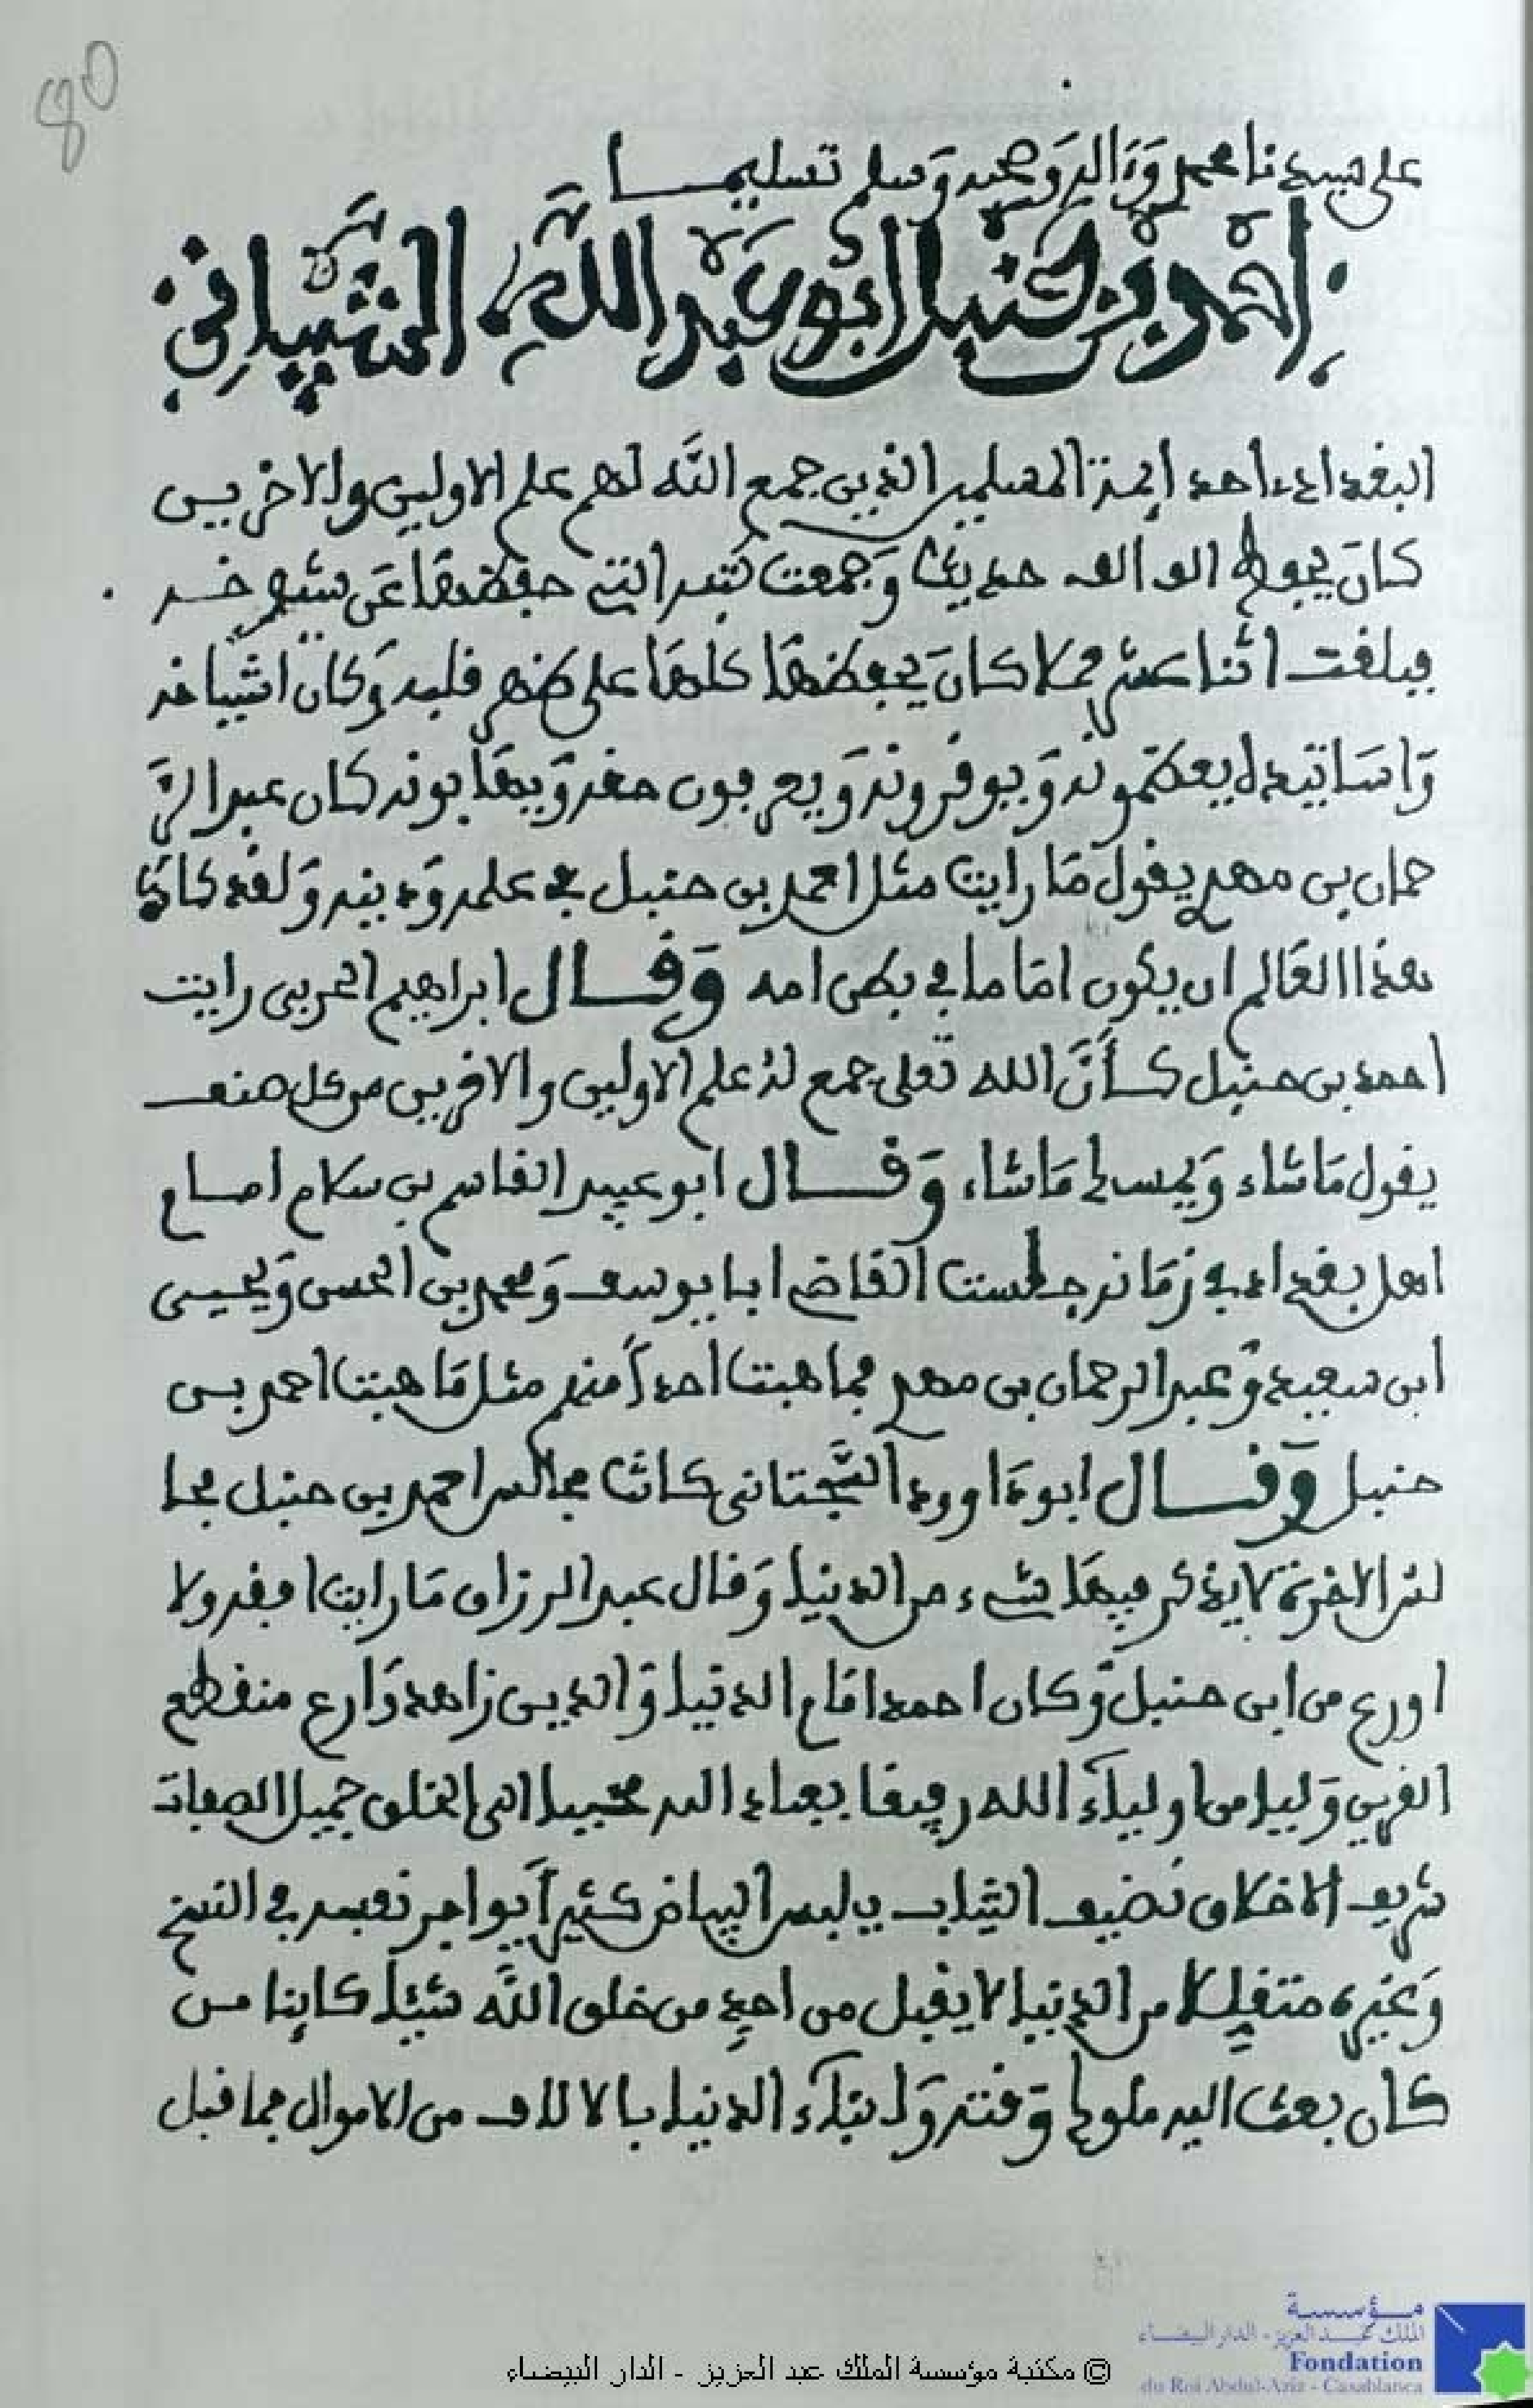 80
على سيدنا محمد وءاله وصحبه وسلم تسليما
أحمد بن حنبل أبو عبد الله الشيباني
البغدادي احد ايمة المسلمين الذين جمع الله لهم علم الاولين والاخرين
كان يحفظ الف الف حديث وجمعت كتبه التي حفظها عن شيوخه
فبلغت اثنا عشر حملا كان يحفظها كلها على ظهر قلبه وكان اشياخه
واساتيده يعظمونه ويوفرونه ويعرفون حقه ويهابونه كان عبد الر
حمان بن مهدي يقول ما رايت مثل احمد بن حنبل في علمه ودينه ولقد كاد
هذا العالم ان يكون اماما في بطن امه وقال ابراهيم الحربي رايت
احمد بن حنبل كأن الله تعلى جمع له علم الاولين والاخرين من كل صنف
يقول ما شاء ويمسك ما شاء وقال ابو عبيد القاسم بن سلام امام
اهل بغداد في زمانه جلست القاضي ابا يوسف ومحمد بن الحسن ويحيى
ابن سعيد وعبد الرحمان بن مهدي فما هبت احدا منهم مثل ما هبت احمد بن
حنبل وقال ابو داوود السجستاني كانت مجالس احمد بن حنبل مجا
لس الاخرة لا يذكر فيها شيء من الدنيا وقال عبد الرزاق ما رايت افقه ولا
اورع من ابن حنبل وكان احمد امام الدنيا والدين زاهد وارع منقطع
القرين وليا من اولياء الله رفيقا بعباد الله محببا الى الخلق جميل الصفات
شريف الاخلاق نضيف الثياب يلبس البياض كثيرا يواجر نفسه في النسخ
وغيره متقللا من الدنيا لا يقبل من احد من خلق الله شيئا كاينا من
كان بعث اليه ملوك وقته وابناء الدنيا بالالاف من الاموال فما قبل
مؤسسة
الملك عبد العزيز - الدار البيضاء
Fondation
du Roi Abdul-Aziz - Casablanca
© مكتبة مؤسسة الملك عبد العزيز - الدار البيضاء